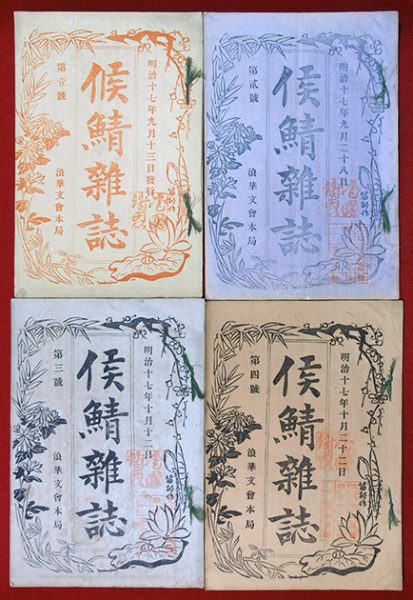 明治十七年九月十三日發行
侯鯖雜誌
第壹號
浪華文會本局
明治十七年九月二十八日
侯鯖雜誌
第貳號
浪華文會本局
明治十七年十月十二日
侯鯖雜誌
第三號
浪華文會本局
明治十七年十月二十二日
侯鯖雜誌
第四號
浪華文會本局